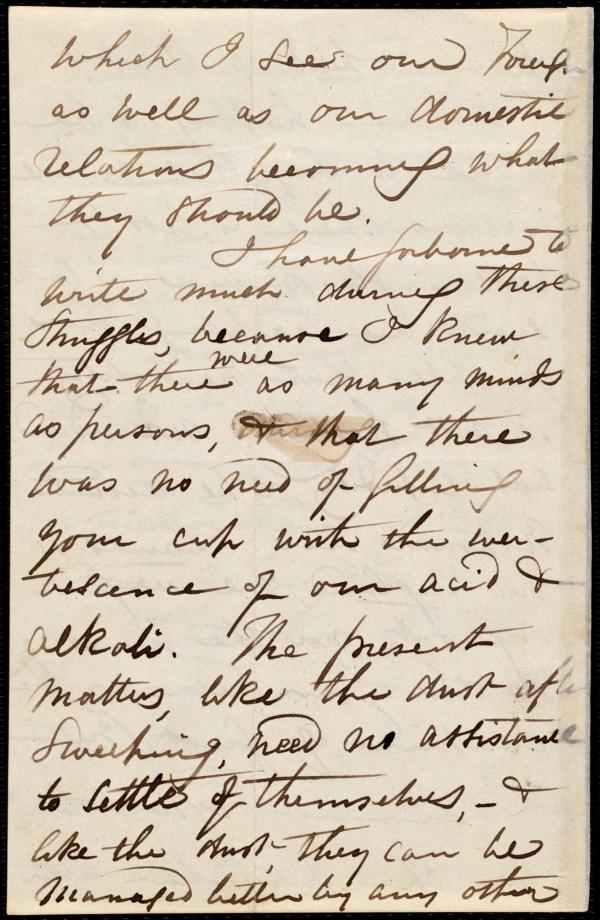 which I see our Foreign
as well as our domestic
relations becoming what
they should be.
I have forborne to
write much during these
struggles, because I knew
that there were as many minds
as persons, & that there
was no need of filling
your cup with the
of our acid &
alkali. The present
matters, like the dust after
sweeping, need no assistance
to settle of themselves, - &
like the dust, they can be
managed better by any other